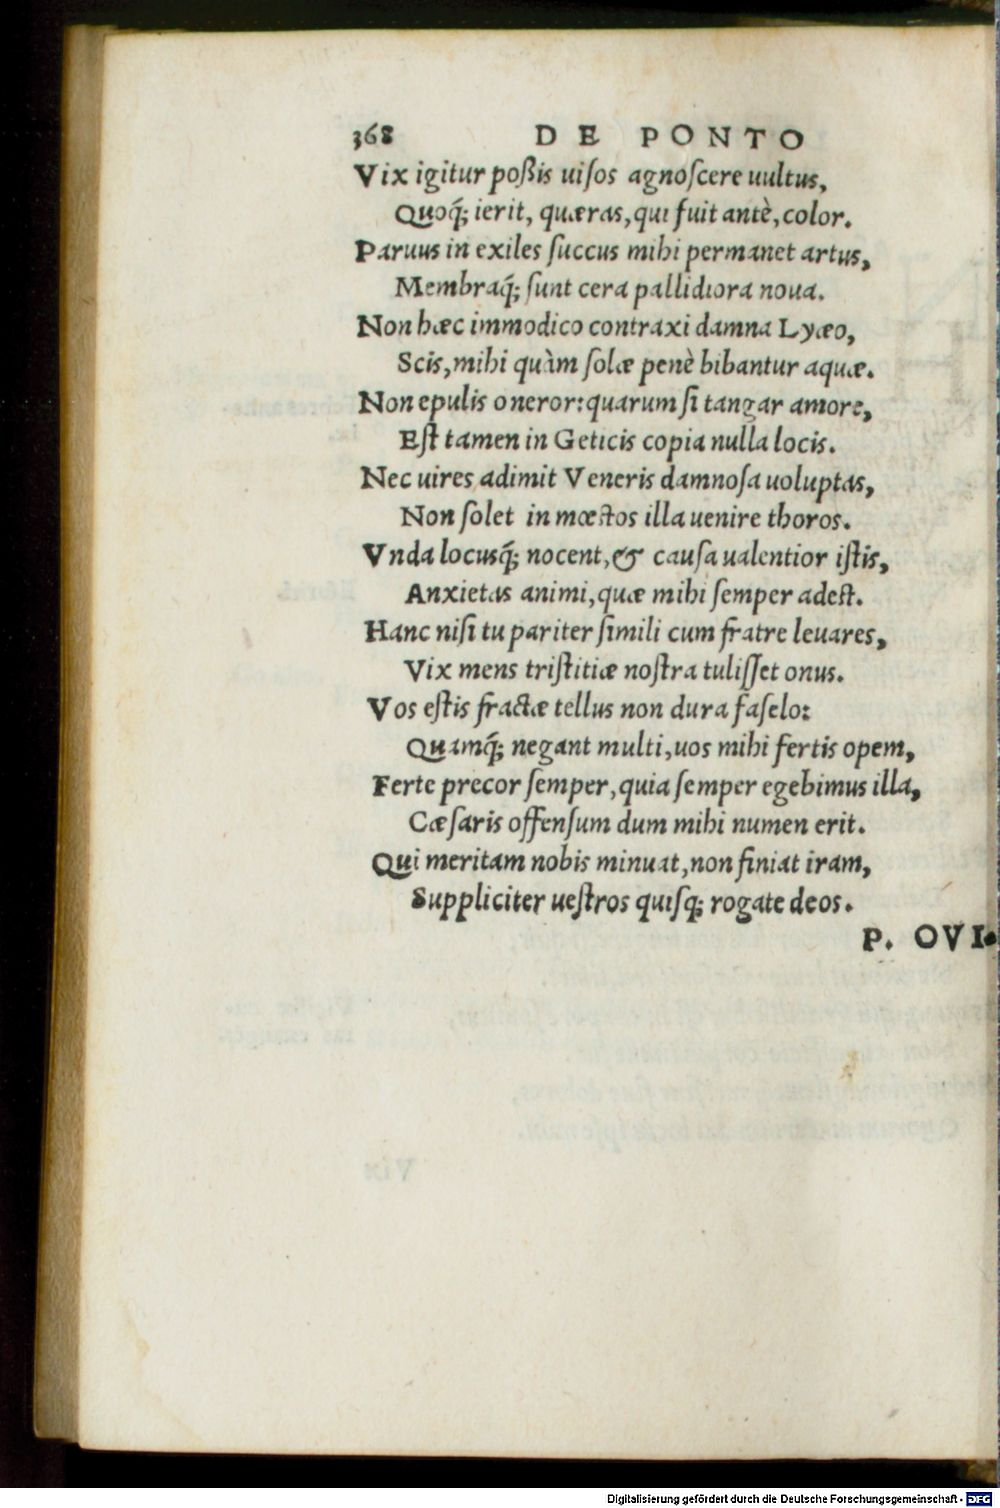 368 DE PONTO
Vix igitur poßis uiſos agnoſcere uultus,
Quoq́; ierit, quæras, qui fuit antè, color.
Paruus in exiles ſuccus mihi permanet artus,
Membraq́; ſunt cera pallidiora noua.
Non hæc immodico contraxi damna Lyæo,
Scis, mihi quàm ſolæ penè bibantur aquæ.
Non epulis oneror: quarum ſi tangar amore,
Eſt tamen in Geticis copia nulla locis.
Nec uires adimit Veneris damnoſa uoluptas,
Non ſolet in mœſtos illa uenire thoros.
Vnda locusq́; nocent, & cauſa ualentior iſtis,
Anxietas animi, quæ mihi ſemper adeſt.
Hanc niſi tu pariter ſimili cum fratre leuares,
Vix mens triſtitiæ noſtra tuliſſet onus.
Vos eſtis fractæ tellus non dura faſelo:
Quamq́; negant multi, uos mihi fertis opem,
Ferte precor ſemper, quia ſemper egebimus illa,
Cæſaris offenſum dum mihi numen erit.
Qui meritam nobis minuat, non finiat iram,
Suppliciter ueſtros quiſq; rogate deos.
P. OVI.
Digitalisierung gefördert durch die Deutsche Forschungsgemeinschaft - DFG